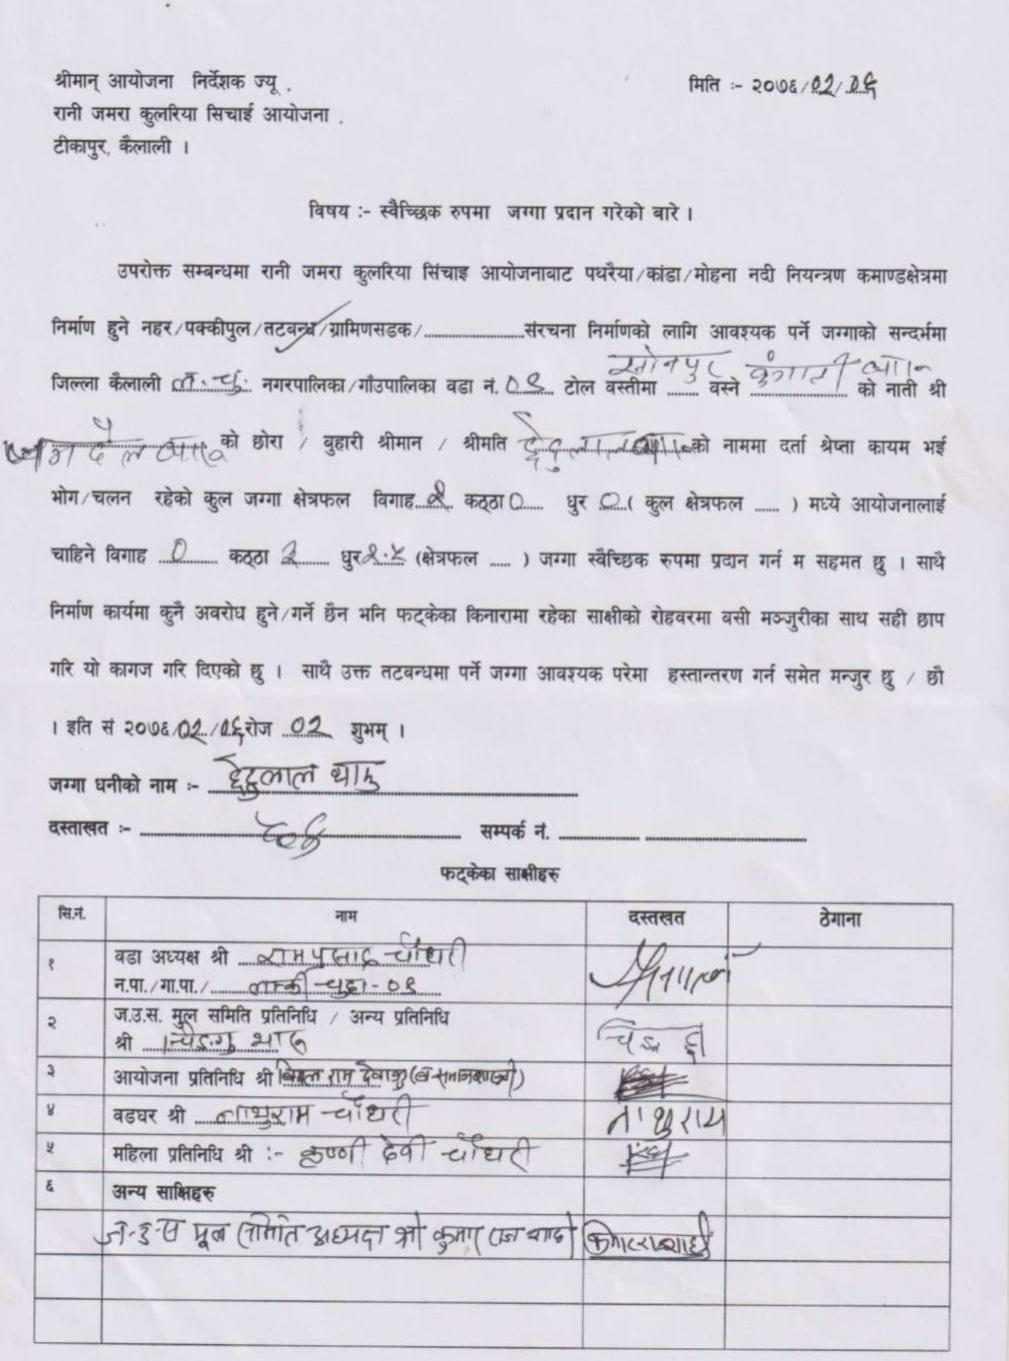 श्रीमान् आयोजना निर्देशक ज्यू .
मिति :- २०७६/०२/०६
रानी जमरा कुलरिया सिचाई आयोजना .
टीकापुर, कैलाली ।
विषय :- स्वैच्छिक रुपमा जग्गा प्रदान गरेको बारे ।
उपरोक्त सम्बन्धमा रानी जमरा कुलरिया सिंचाइ आयोजनाबाट पथरैया/कांडा/मोहना नदी नियन्त्रण कमाण्डक्षेत्रमा
निर्माण हुने नहर/पक्कीपुल/तटबन्ध/ग्रामिणसडक/....................संरचना निर्माणको लागि आवश्यक पर्ने जग्गाको सन्दर्भमा
जिल्ला कैलाली ल.चु. नगरपालिका/गाँउपालिका वडा नं. ०९ टोल वस्तीमा सोनपुर वस्ने को नाती श्री
को छोरा / बुहारी श्रीमान / श्रीमति को नाममा दर्ता श्रेष्ता कायम भई
भोग/चलन रहेको कुल जग्गा क्षेत्रफल विगाह कठ्ठा ० धुर ० ( कुल क्षेत्रफल ...... ) मध्ये आयोजनालाई
चाहिने विगाह ० कठ्ठा धुर (क्षेत्रफल ..... ) जग्गा स्वैच्छिक रुपमा प्रदान गर्न म सहमत छु । साथै
निर्माण कार्यमा कुनै अवरोध हुने/गर्ने छैन भनि फट्केका किनारामा रहेका साक्षीको रोहवरमा बसी मञ्जुरीका साथ सही छाप
गरि यो कागज गरि दिएको छु । साथै उक्त तटबन्धमा पर्ने जग्गा आवश्यक परेमा हस्तान्तरण गर्न समेत मन्जुर छु / छौ
। इति सं २०७६/०२/०६ रोज ०२ शुभम् ।
जग्गा धनीको नाम :- छेदुलाल थारु
दस्ताखत :- सम्पर्क नं.
फट्केका साक्षीहरु
सि.नं. नाम दस्तखत ठेगाना
१ वडा अध्यक्ष श्री रामप्रसाद चौधरी
न.पा./गा.पा./ लम्की चुहा-०९
२ ज.उ.स. मुल समिति प्रतिनिधि / अन्य प्रतिनिधि
श्री
३ आयोजना प्रतिनिधि श्री
४ वडघर श्री नाथुराम चौधरी नाथुराम
५ महिला प्रतिनिधि श्री :- कृष्णी देवी चौधरी
६ अन्य साक्षिहरु
ज.उ.स मूल समिति अध्यक्ष श्री